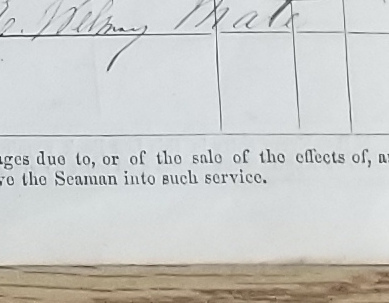 Mate
ages due to, or of the sale of the effects of, a
ve the Seaman into such service.